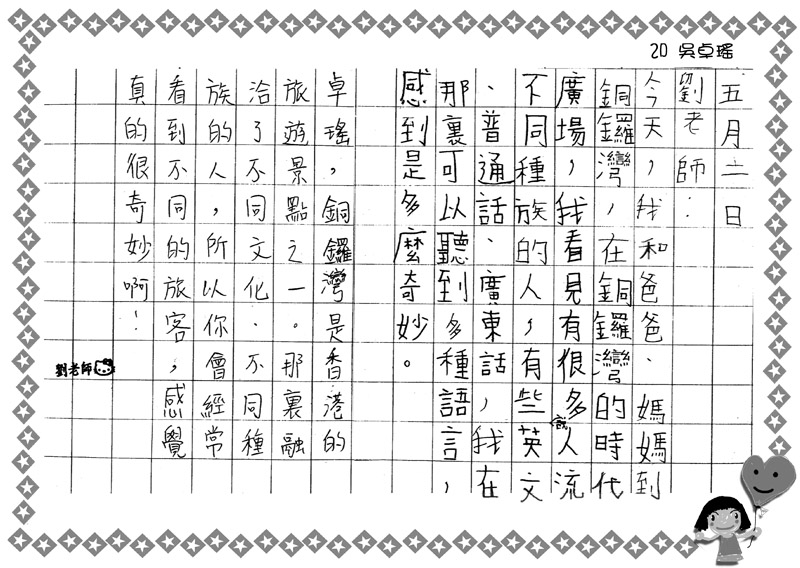 20 吳卓瑤
五月二日
劉老師：
今天，我和爸爸、媽媽到
銅鑼灣，在銅鑼灣的時代
廣場，我看見有很多人流
不同種族的人，有些說英文
、普通話、廣東話，我在
那裏可以聽到多種語言，
感到是多麼奇妙。
卓瑤，銅鑼灣是香港的
旅遊景點之一。那裏融
洽了不同文化、不同種
族的人，所以你會經常
看到不同的旅客，感覺
真的很奇妙啊！
劉老師